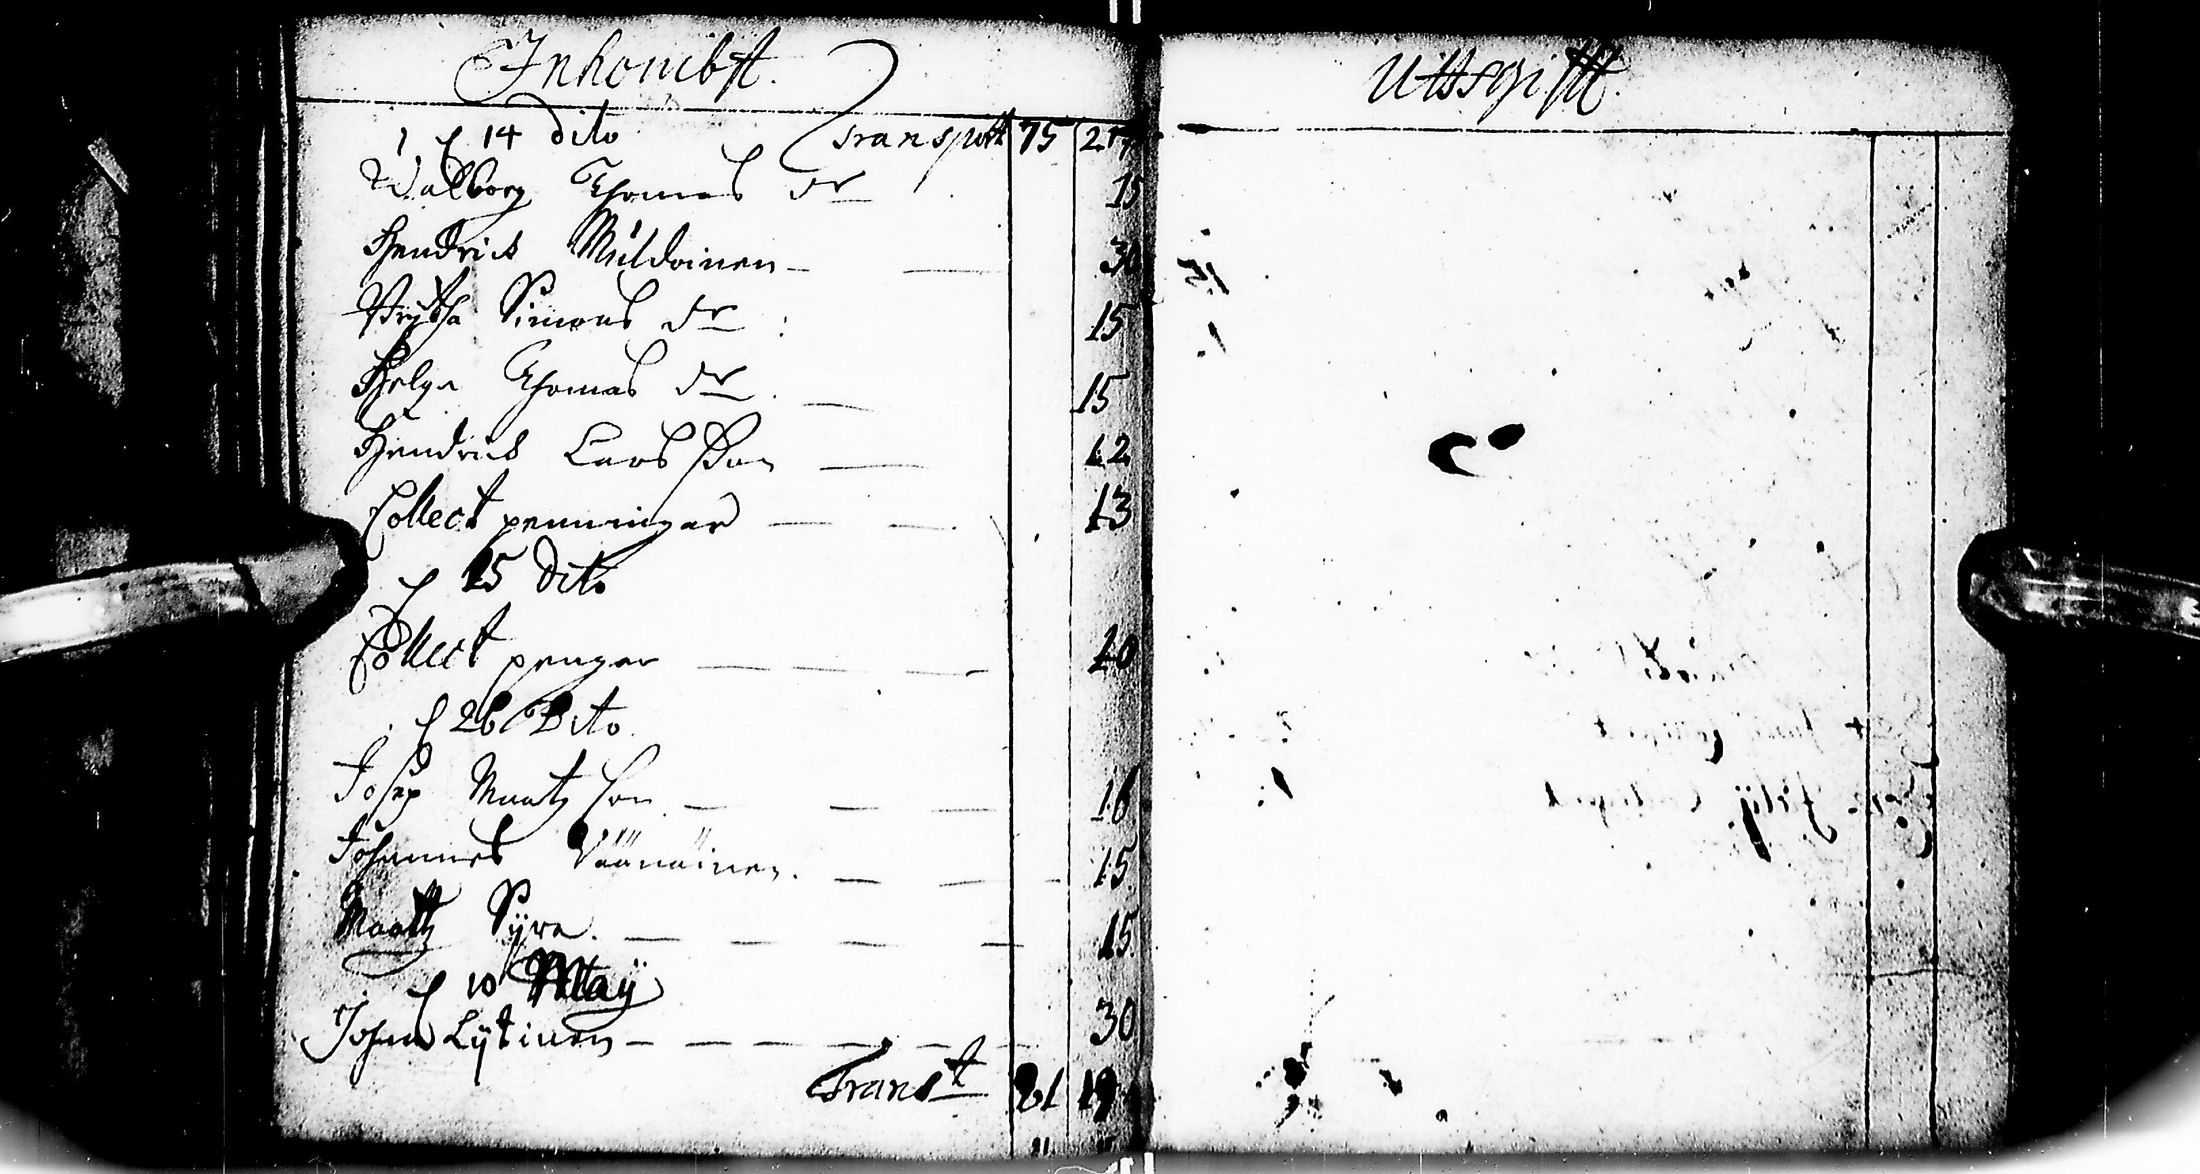 Inkombst.
1 d 14 dito Transportt 75 2
Walborg Thomas dr 15
Hendrich Muldoinen 30
Brytha Simons dr 15
Helga Thomas dr 15
Hendrich Lars Son 12
Collect penningar 13
d 15 dito
Collect pengar 20
d 26 Dito
Josep Maatz son 16
Johannes Väänäinen. 15
Maattz Syre. 15
d 10 Maÿ
Johan Lÿtinen 30
Transt 81 19
Uttsgifft.